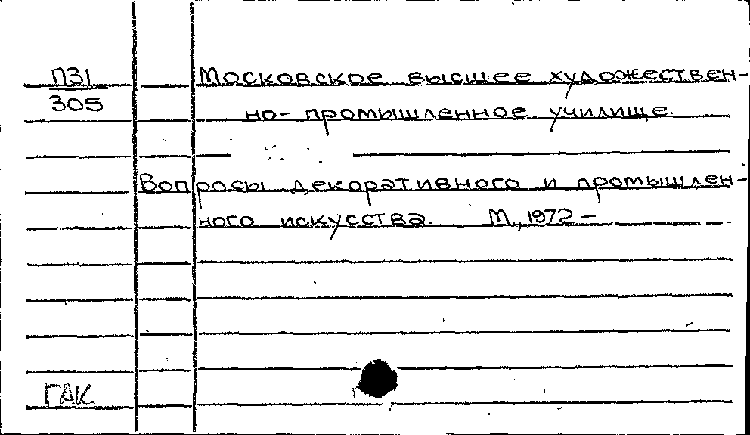 П31
305
Московское высшее художествен-
но-промышленное училище.
Вопросы декоративного и промышлен-
ного искусства. М., 1972 -
ГАК